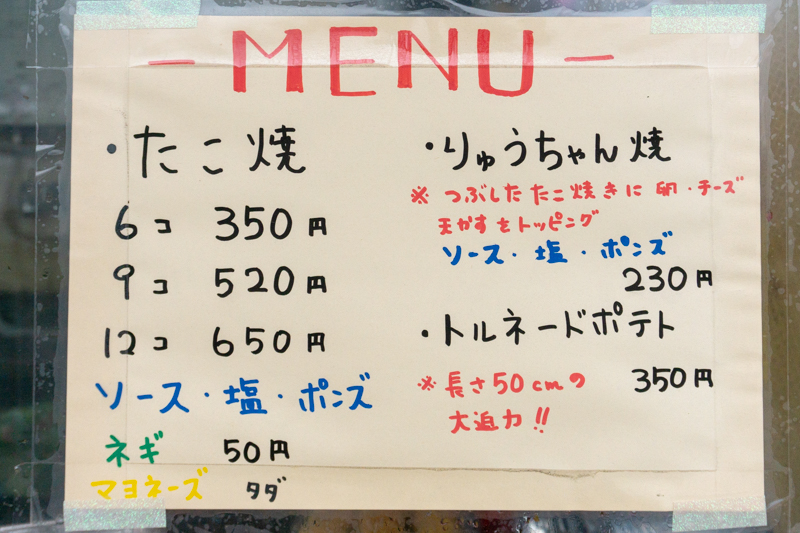 - MENU -
・たこ焼
6コ 350円
9コ 520円
12コ 650円
ソース・塩・ポンズ
ネギ 50円
マヨネーズ タダ
・りゅうちゃん焼
※つぶしたたこ焼きに卵・チーズ
天かすをトッピング
ソース・塩・ポンズ
230円
・トルネードポテト
350円
※長さ50cmの
大迫力!!